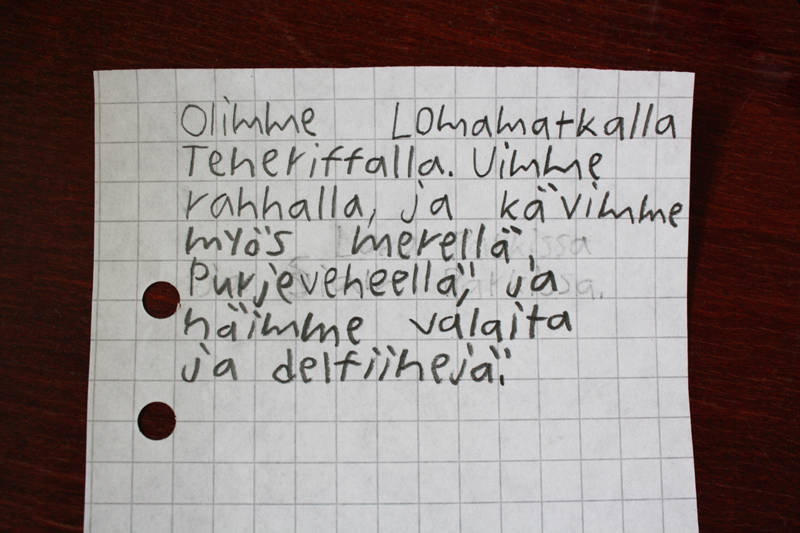 Olimme Lomamatkalla
Teneriffalla. Uimme
rannalla, ja kävimme
myös merellä,
Purjeveneellä, ja
näimme valaita
ja delfiinejä.